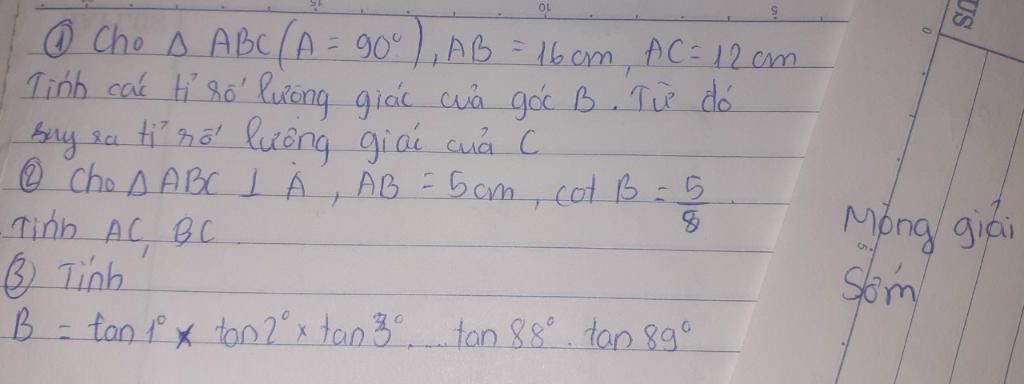 ① Cho Δ ABC (A = 90°), AB = 16 cm, AC = 12 cm
Tính các tỉ số lượng giác của góc B. Từ đó
suy ra tỉ số lượng giác của C
② Cho Δ ABC ⊥ A, AB = 5 cm, cot B = 5/8
Tính AC, BC
③ Tính
B = tan 1° x tan 2° x tan 3° .... tan 88° . tan 89°
Mong giải
Sớm
US
15
10
5
0
5